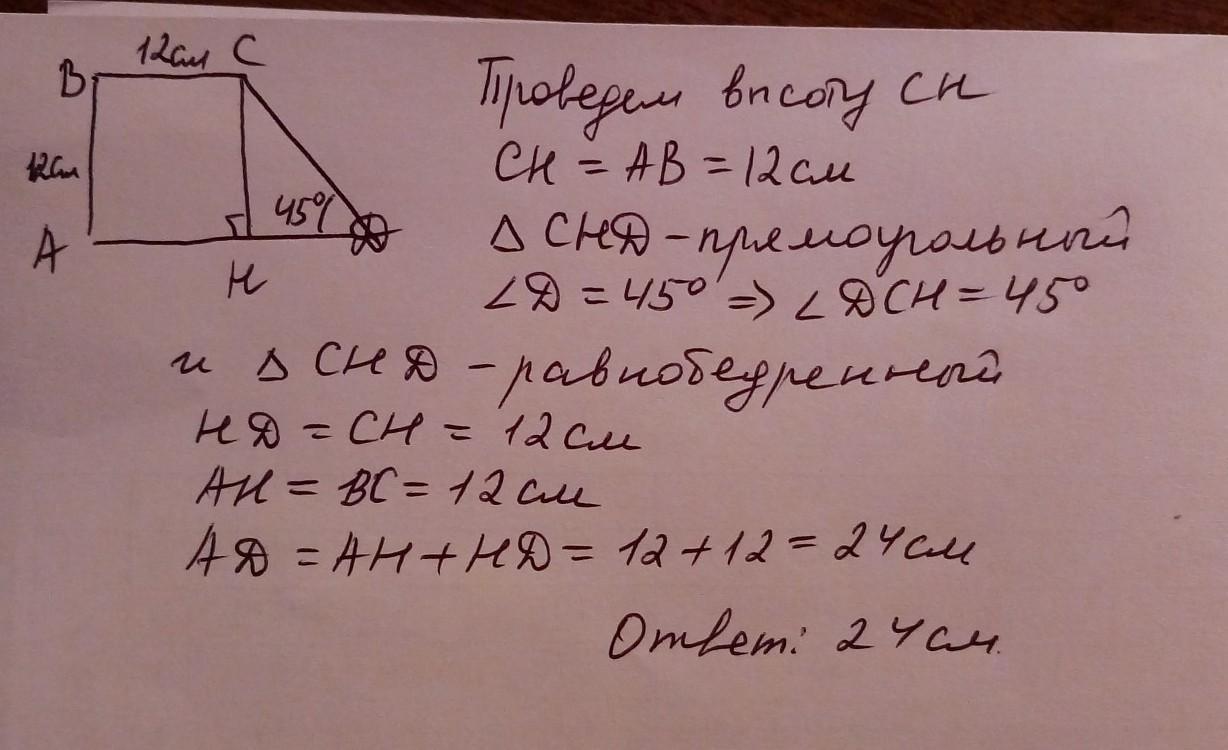 12см C
B
12см
45°
A
D
H
Проведем высоту CH
CH = AB = 12см
Δ CHD - прямоугольный
∠D = 45° ⇒ ∠DCH = 45°
и Δ CHD - равнобедренный
HD = CH = 12см
AH = BC = 12см
AD = AH + HD = 12 + 12 = 24см
Ответ: 24см.